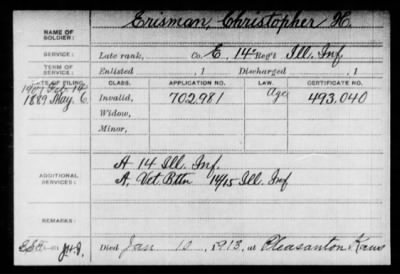 NAME OF SOLDIER: Erisman, Christopher H.
SERVICE: Late rank, Co. E, 14" Reg't Ill. Inf
TERM OF SERVICE: Enlisted , 1 Discharged , 1
DATE OF FILING. CLASS. APPLICATION NO. LAW. CERTIFICATE NO.
1907 Feb
1889 May, 6 Invalid, 702.981 Age 493.040
Widow,
Minor,
ADDITIONAL SERVICES: A 14 Ill. Inf.
A. Vet. Battn 14/15 Ill. Inf
REMARKS:
Died Jan 10, 1913, at Pleasanton Kans